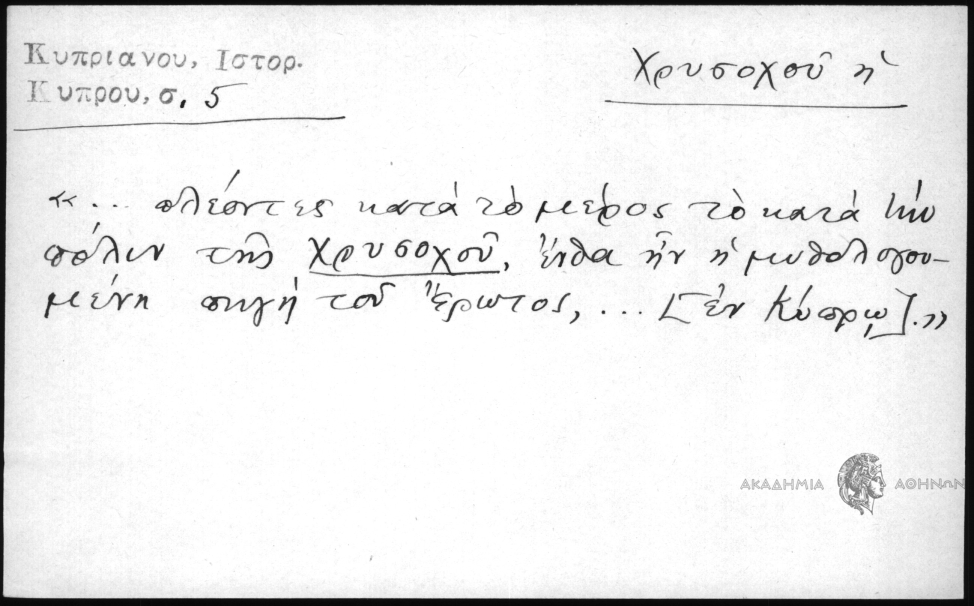 Κυπριανου, Ιστορ.
Κυπρου, σ. 5
Χρυσοχοῦ ἡ
«... πλέοντες κατὰ τὸ μέρος τὸ κατὰ τὴν
πόλιν τῆς Χρυσοχοῦ, ἔνθα ἦν ἡ μυθολογου-
μένη πηγὴ τοῦ Ἔρωτος, ... [ἐν Κύπρῳ].»
ΑΚΑΔΗΜΙΑ ΑΘΗΝΩΝ